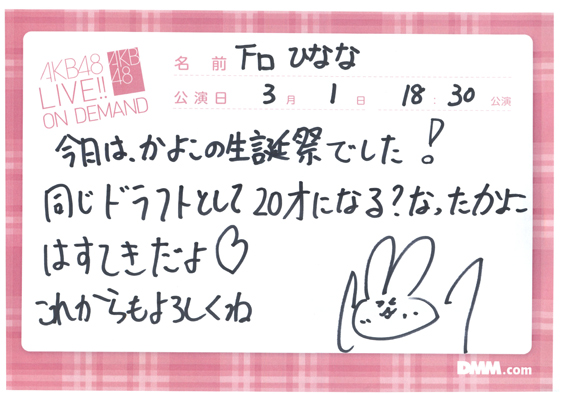 AKB48
LIVE!!
ON DEMAND
AKB
48
名前 下口 ひなな
公演日 3月 1日 18:30 公演
今日は、かよこの生誕祭でした!
同じドラフトとして20才になる?なったかよこ
はすてきだよ♡
これからもよろしくね
DMM.com